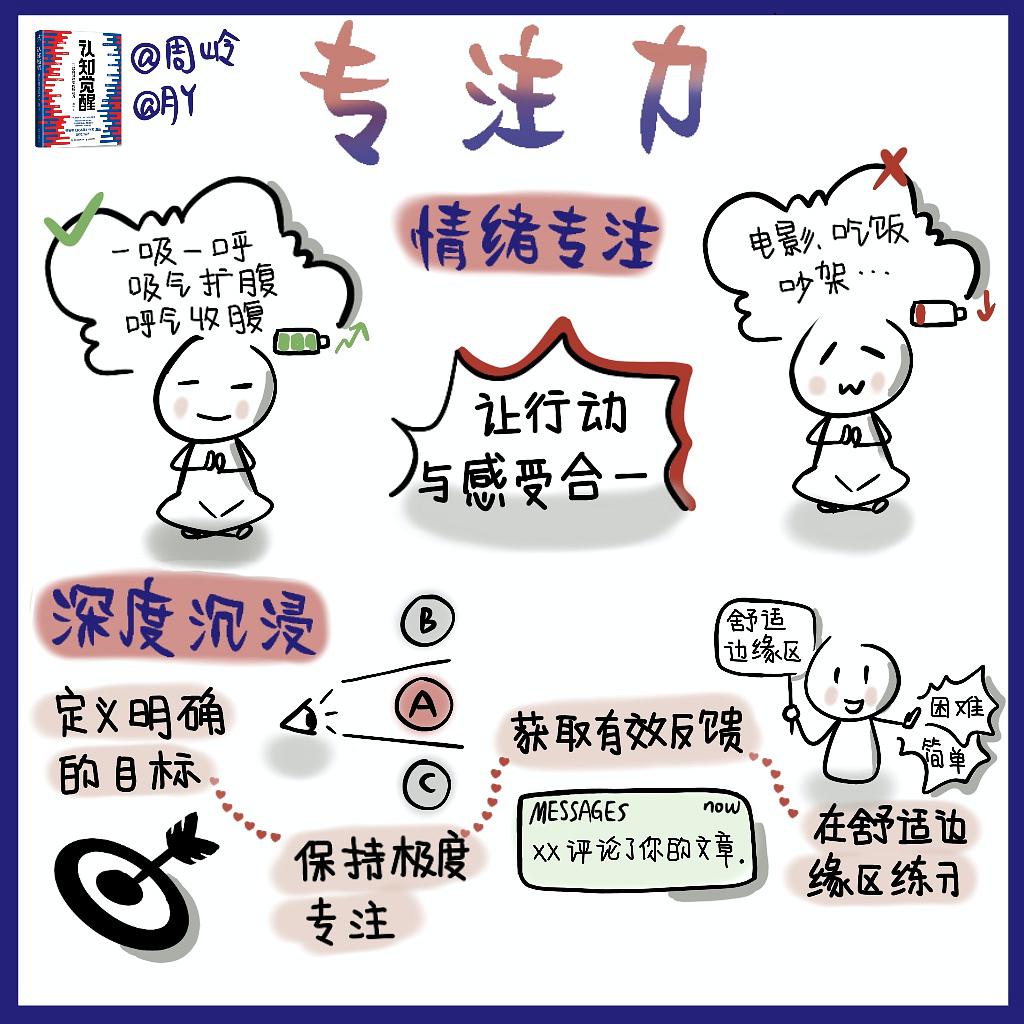 认知觉醒
@周岭
@月Y
专注力
一吸一呼
吸气扩腹
呼气收腹
情绪专注
电影、吃饭
吵架…
让行动
与感受合一
深度沉浸
定义明确
的目标
B
A
C
保持极度
专注
获取有效反馈
MESSAGES now
XX评论了你的文章.
舒适
边缘区
困难
简单
在舒适边
缘区练习